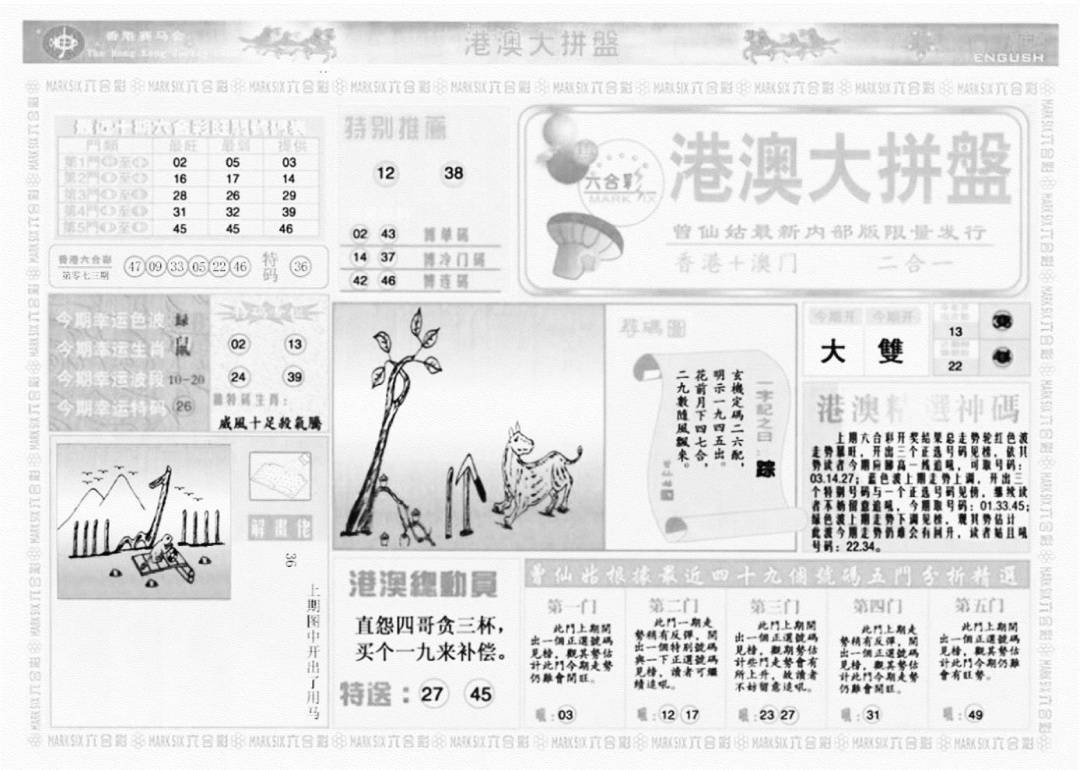 香港赛马会
The Hong Kong Jockey
港澳大拼盤
ENGUSH
MARK SIX 六合彩
門類 最旺 最弱 提供
第1門 至 02 05 03
第2門 至 16 17 14
第3門 至 28 26 29
第4門 至 31 32 39
第5門 至 45 45 46
香港六合彩
第零七三期
47 09 33 05 22 46
特码
36
特别推薦
12 38
02 43 博单码
14 37 博冷门码
42 46 博连码
六合彩
MARK SIX
港澳大拼盤
曾仙姑最新内部版限量发行
香港+澳门 二合一
今期幸运色波 绿
今期幸运生肖 鼠
今期幸运波段 10-20
今期幸运特码 26
02 13
24 39
威風十足殺氣騰
尋碼圖
一字記之曰：踪
玄機定碼二六配，
明示一九四五出。
花前月下四七合，
二九數隨風飄來。
曾仙姑
今期开 今期开
大 雙
13
22
港澳精選神碼
上期六合彩开奖结果总走势轮红色波
走势最旺，开出三个正选号码见榜，依其
势读者今期应师高一线追吼，可取号码：
03.14.27；蓝色波上期走势上调，开出三
个特别号码与一个正选号码见榜，继续读
者不妨留意追吼，今期取号码：01.33.45；
绿色波上期走势下调见榜，观其势估计
此波今期走势仍难会有回升，读者姑且吼
号码：22.34。
解畫佬
36
上期图中开出了用马
港澳總動員
直怨四哥贪三杯，
买个一九来补偿。
特送：27 45
曾仙姑根據最近四十九個號碼五門分析精選
第一门
此門上期開
出一個正選號碼
見榜，觀其勢估
計此門今期走勢
仍難會開旺。
吼：03
第二门
此門一期走
勢稍有反彈，開
出一個特別號碼
與一下正選號碼
見榜，讀者可繼
續追吼。
吼：12 17
第三门
此門上期開
出一個正選號碼
見榜，觀期勢估
計些門走勢會有
所上升，故讀者
不妨留意追吼。
吼：23 27
第四门
此門上期走
勢稍有反彈，開
出一個正選號碼
見榜，觀其勢估
計此門今期走勢
仍難會開旺。
吼：31
第五门
此門上期開
出一個正選號碼
見榜，觀其勢估
計此門今期仍難
會有旺勢。
吼：49